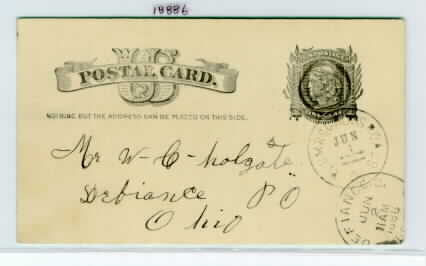 18886
POSTAL CARD.
NOTHING BUT THE ADDRESS CAN BE PLACED ON THIS SIDE.
Mr W-C-Holgate
Defiance PO
Ohio
JUN
1
DEFIANCE
JUN
2
11AM
1886